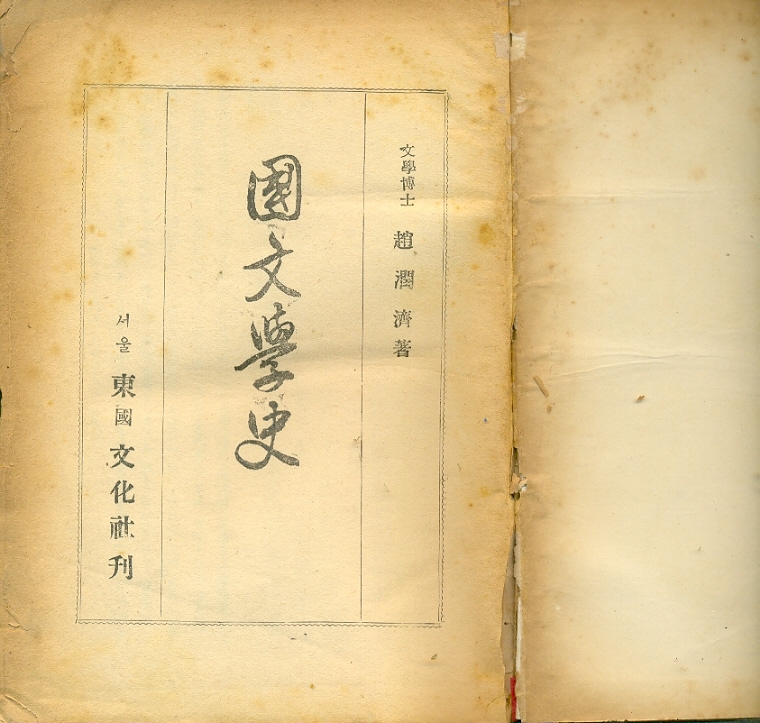 文學博士 趙潤濟著
國文學史
서울 東國文化社刊